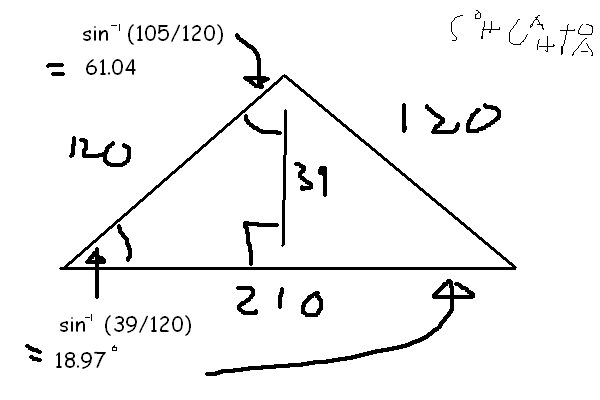 sin⁻¹ (105/120)
= 61.04
SOH CAH TOA
120
120
39
210
sin⁻¹ (39/120)
= 18.97°